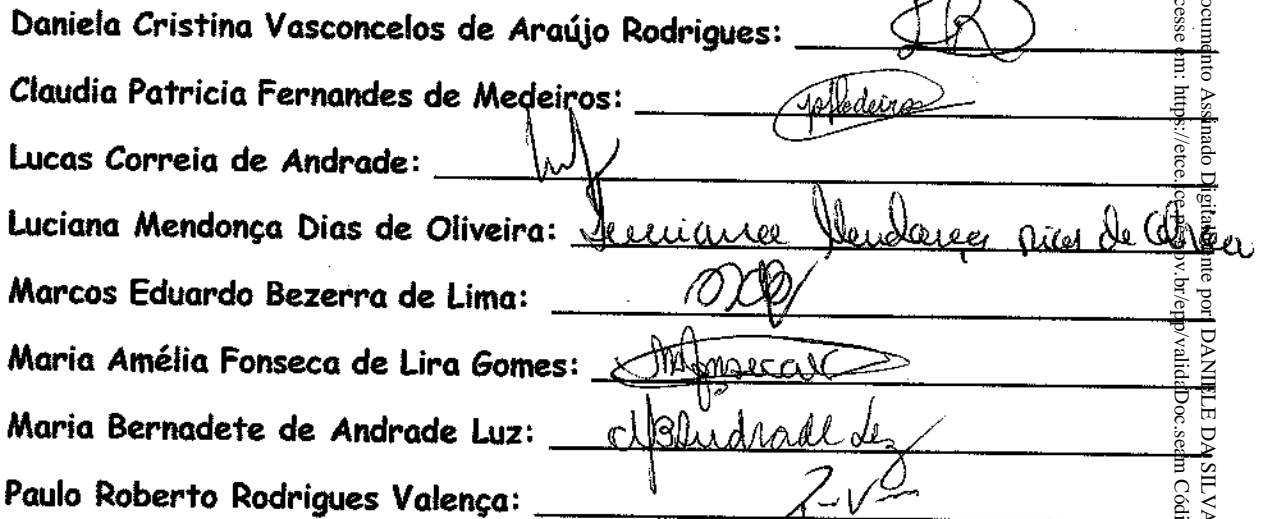 Daniela Cristina Vasconcelos de Araújo Rodrigues:
Claudia Patricia Fernandes de Medeiros:
Lucas Correia de Andrade:
Luciana Mendonça Dias de Oliveira: Luciana Mendonça Dias de Oliveira
Marcos Eduardo Bezerra de Lima:
Maria Amélia Fonseca de Lira Gomes:
Maria Bernadete de Andrade Luz:
Paulo Roberto Rodrigues Valença:
ocumento Assinado Digitalmente por: DANIELE DA SILVA
cesse em: https://etce.tce.pe.gov.br/epp/validaDoc.seam Códi